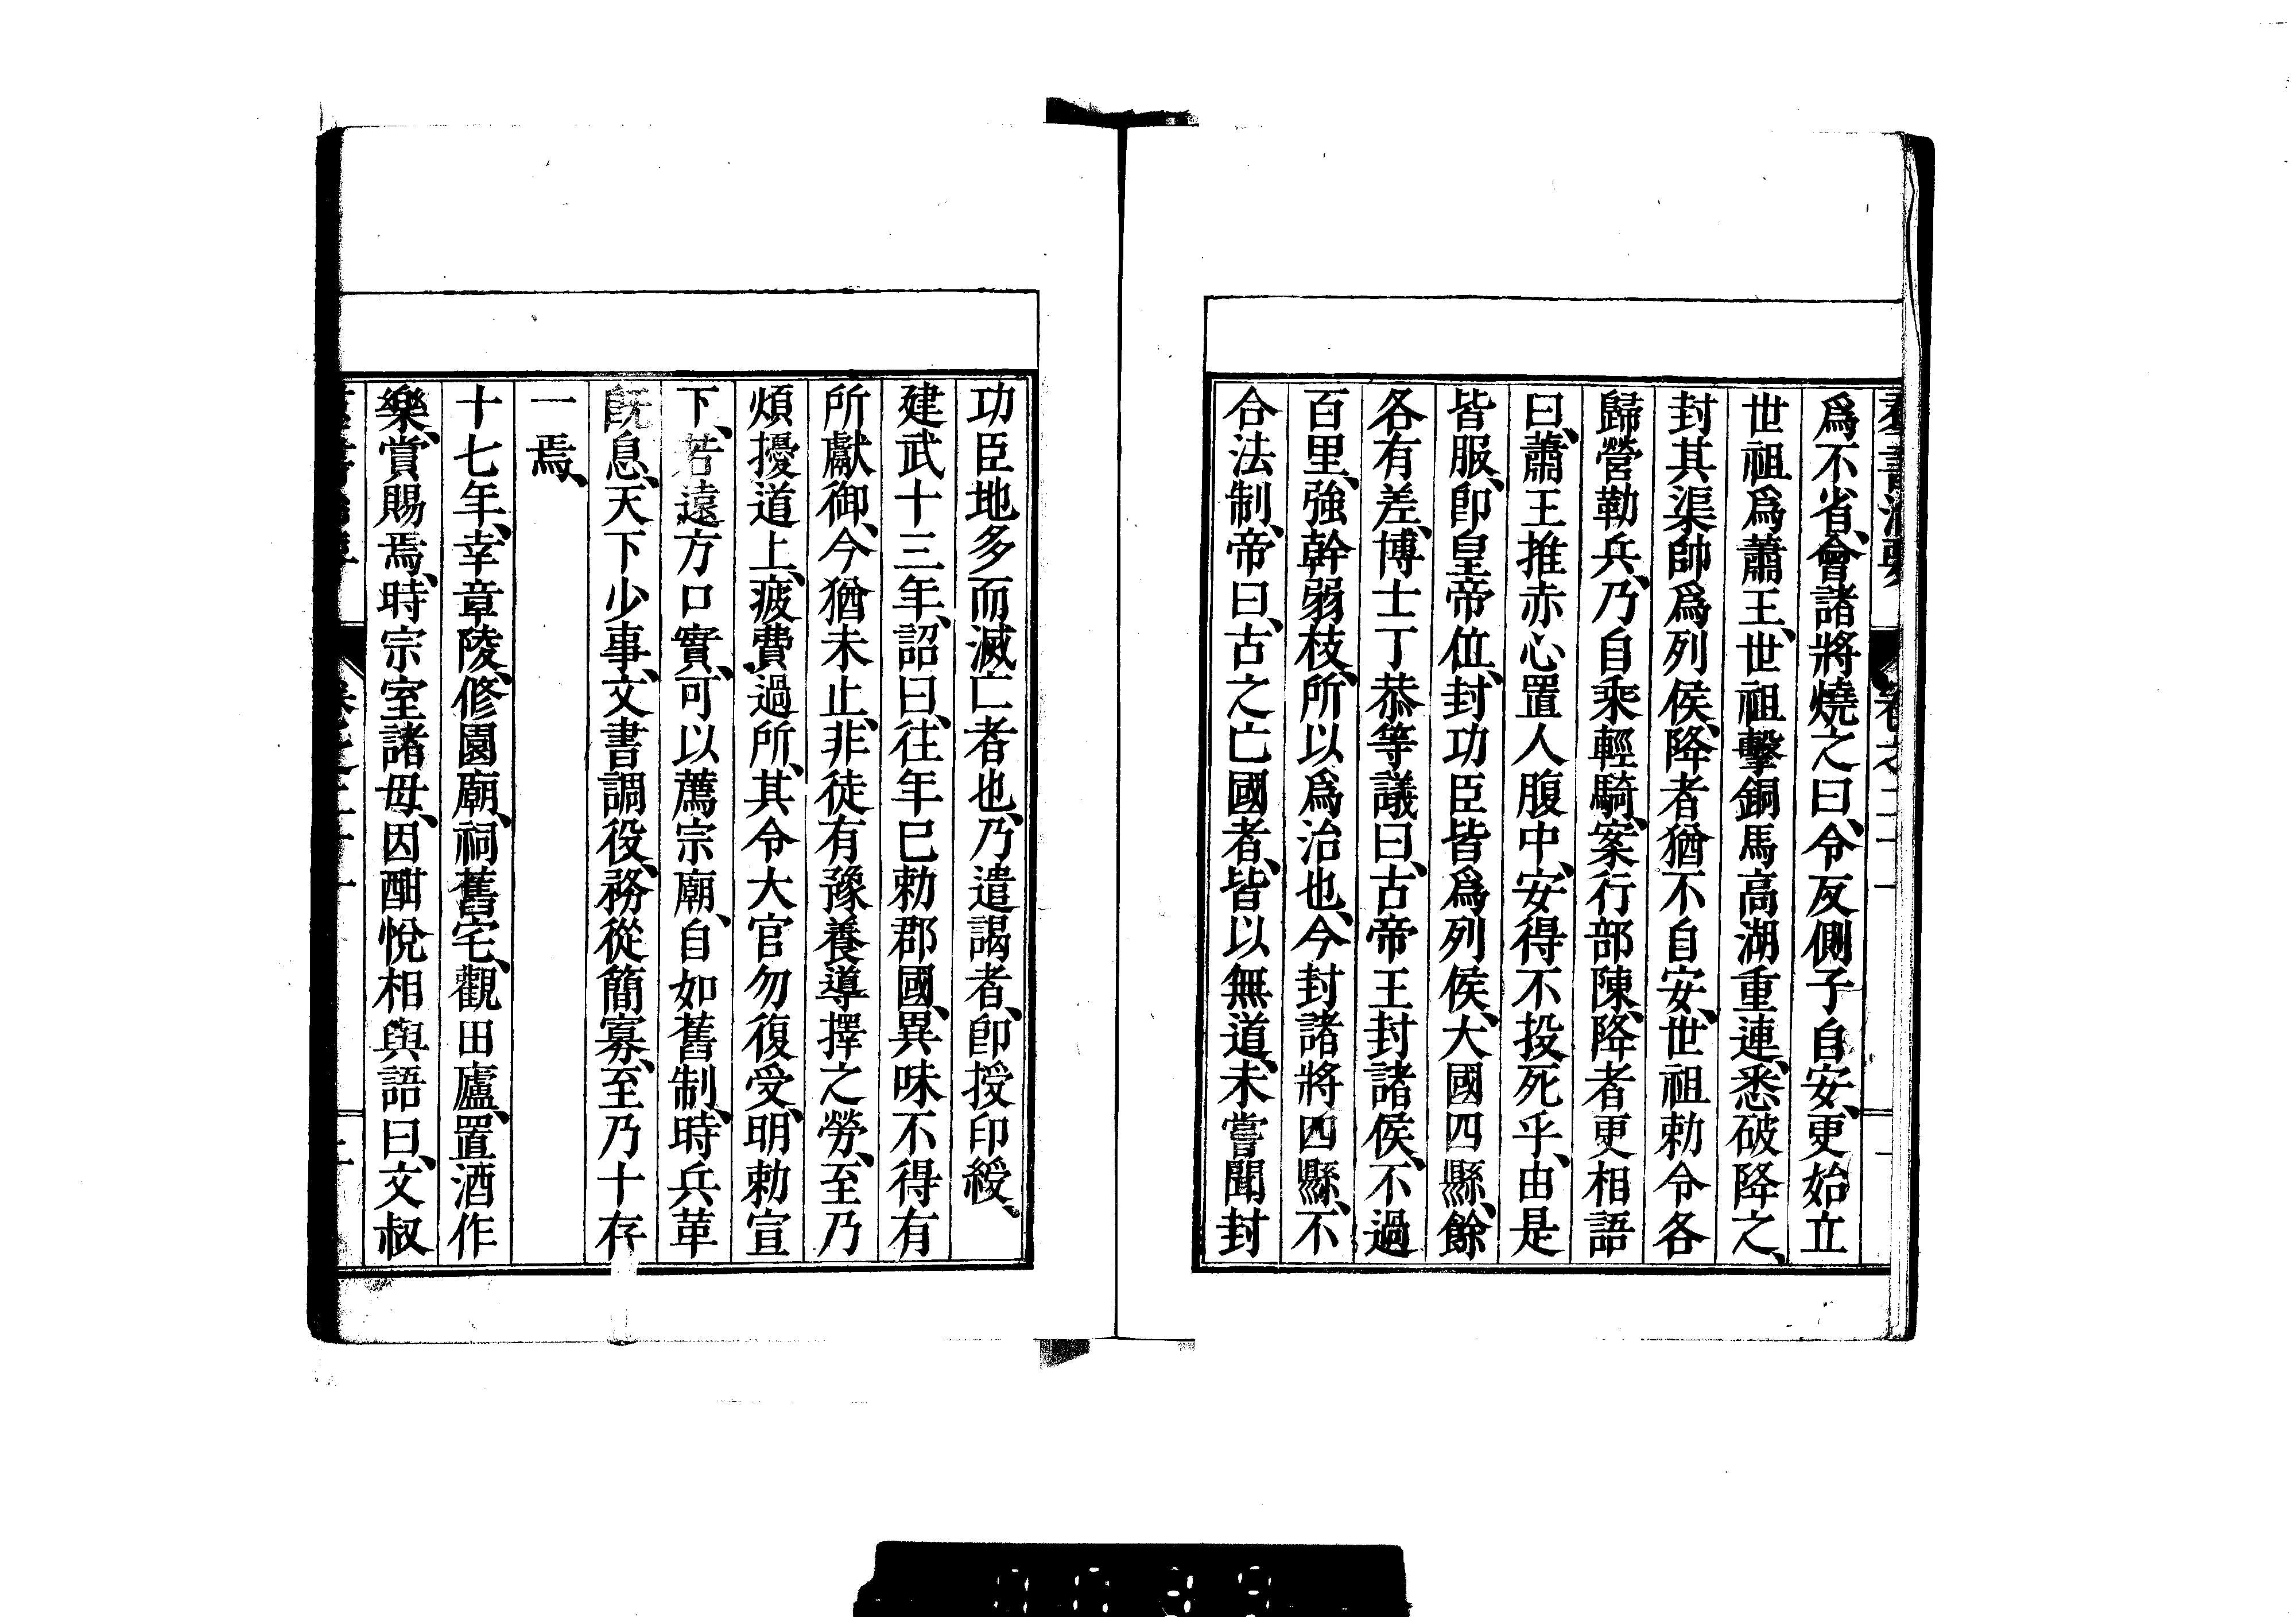 爲不省、會諸將燒之曰、令反側子自安、更始立
世祖爲蕭王、世祖擊銅馬高湖重連、悉破降之、
封其渠帥爲列侯、降者猶不自安、世祖勅令各
歸營勒兵、乃自乘輕騎、案行部陳、降者更相語
曰、蕭王推赤心置人腹中、安得不投死乎、由是
皆服、卽皇帝位、封功臣皆爲列侯、大國四縣、餘
各有差、博士丁恭等議曰、古帝王封諸侯、不過
百里、強幹弱枝、所以爲治也、今封諸將四縣、不
合法制、帝曰、古之亡國者、皆以無道、未嘗聞封
功臣地多而滅亡者也、乃遣謁者、卽授印綬、
建武十三年、詔曰、往年已勅郡國、異味不得有
所獻御、今猶未止、非徒有豫養導擇之勞、至乃
煩擾道上、疲費過所、其令大官勿復受、明勅宣
下、若遠方口實、可以薦宗廟、自如舊制、時兵革
旣息、天下少事、文書調役、務從簡寡、至乃十存
一焉、
十七年、幸章陵、修園廟、祠舊宅、觀田廬、置酒作
樂、賞賜焉、時宗室諸母、因酣悅相與語曰、文叔